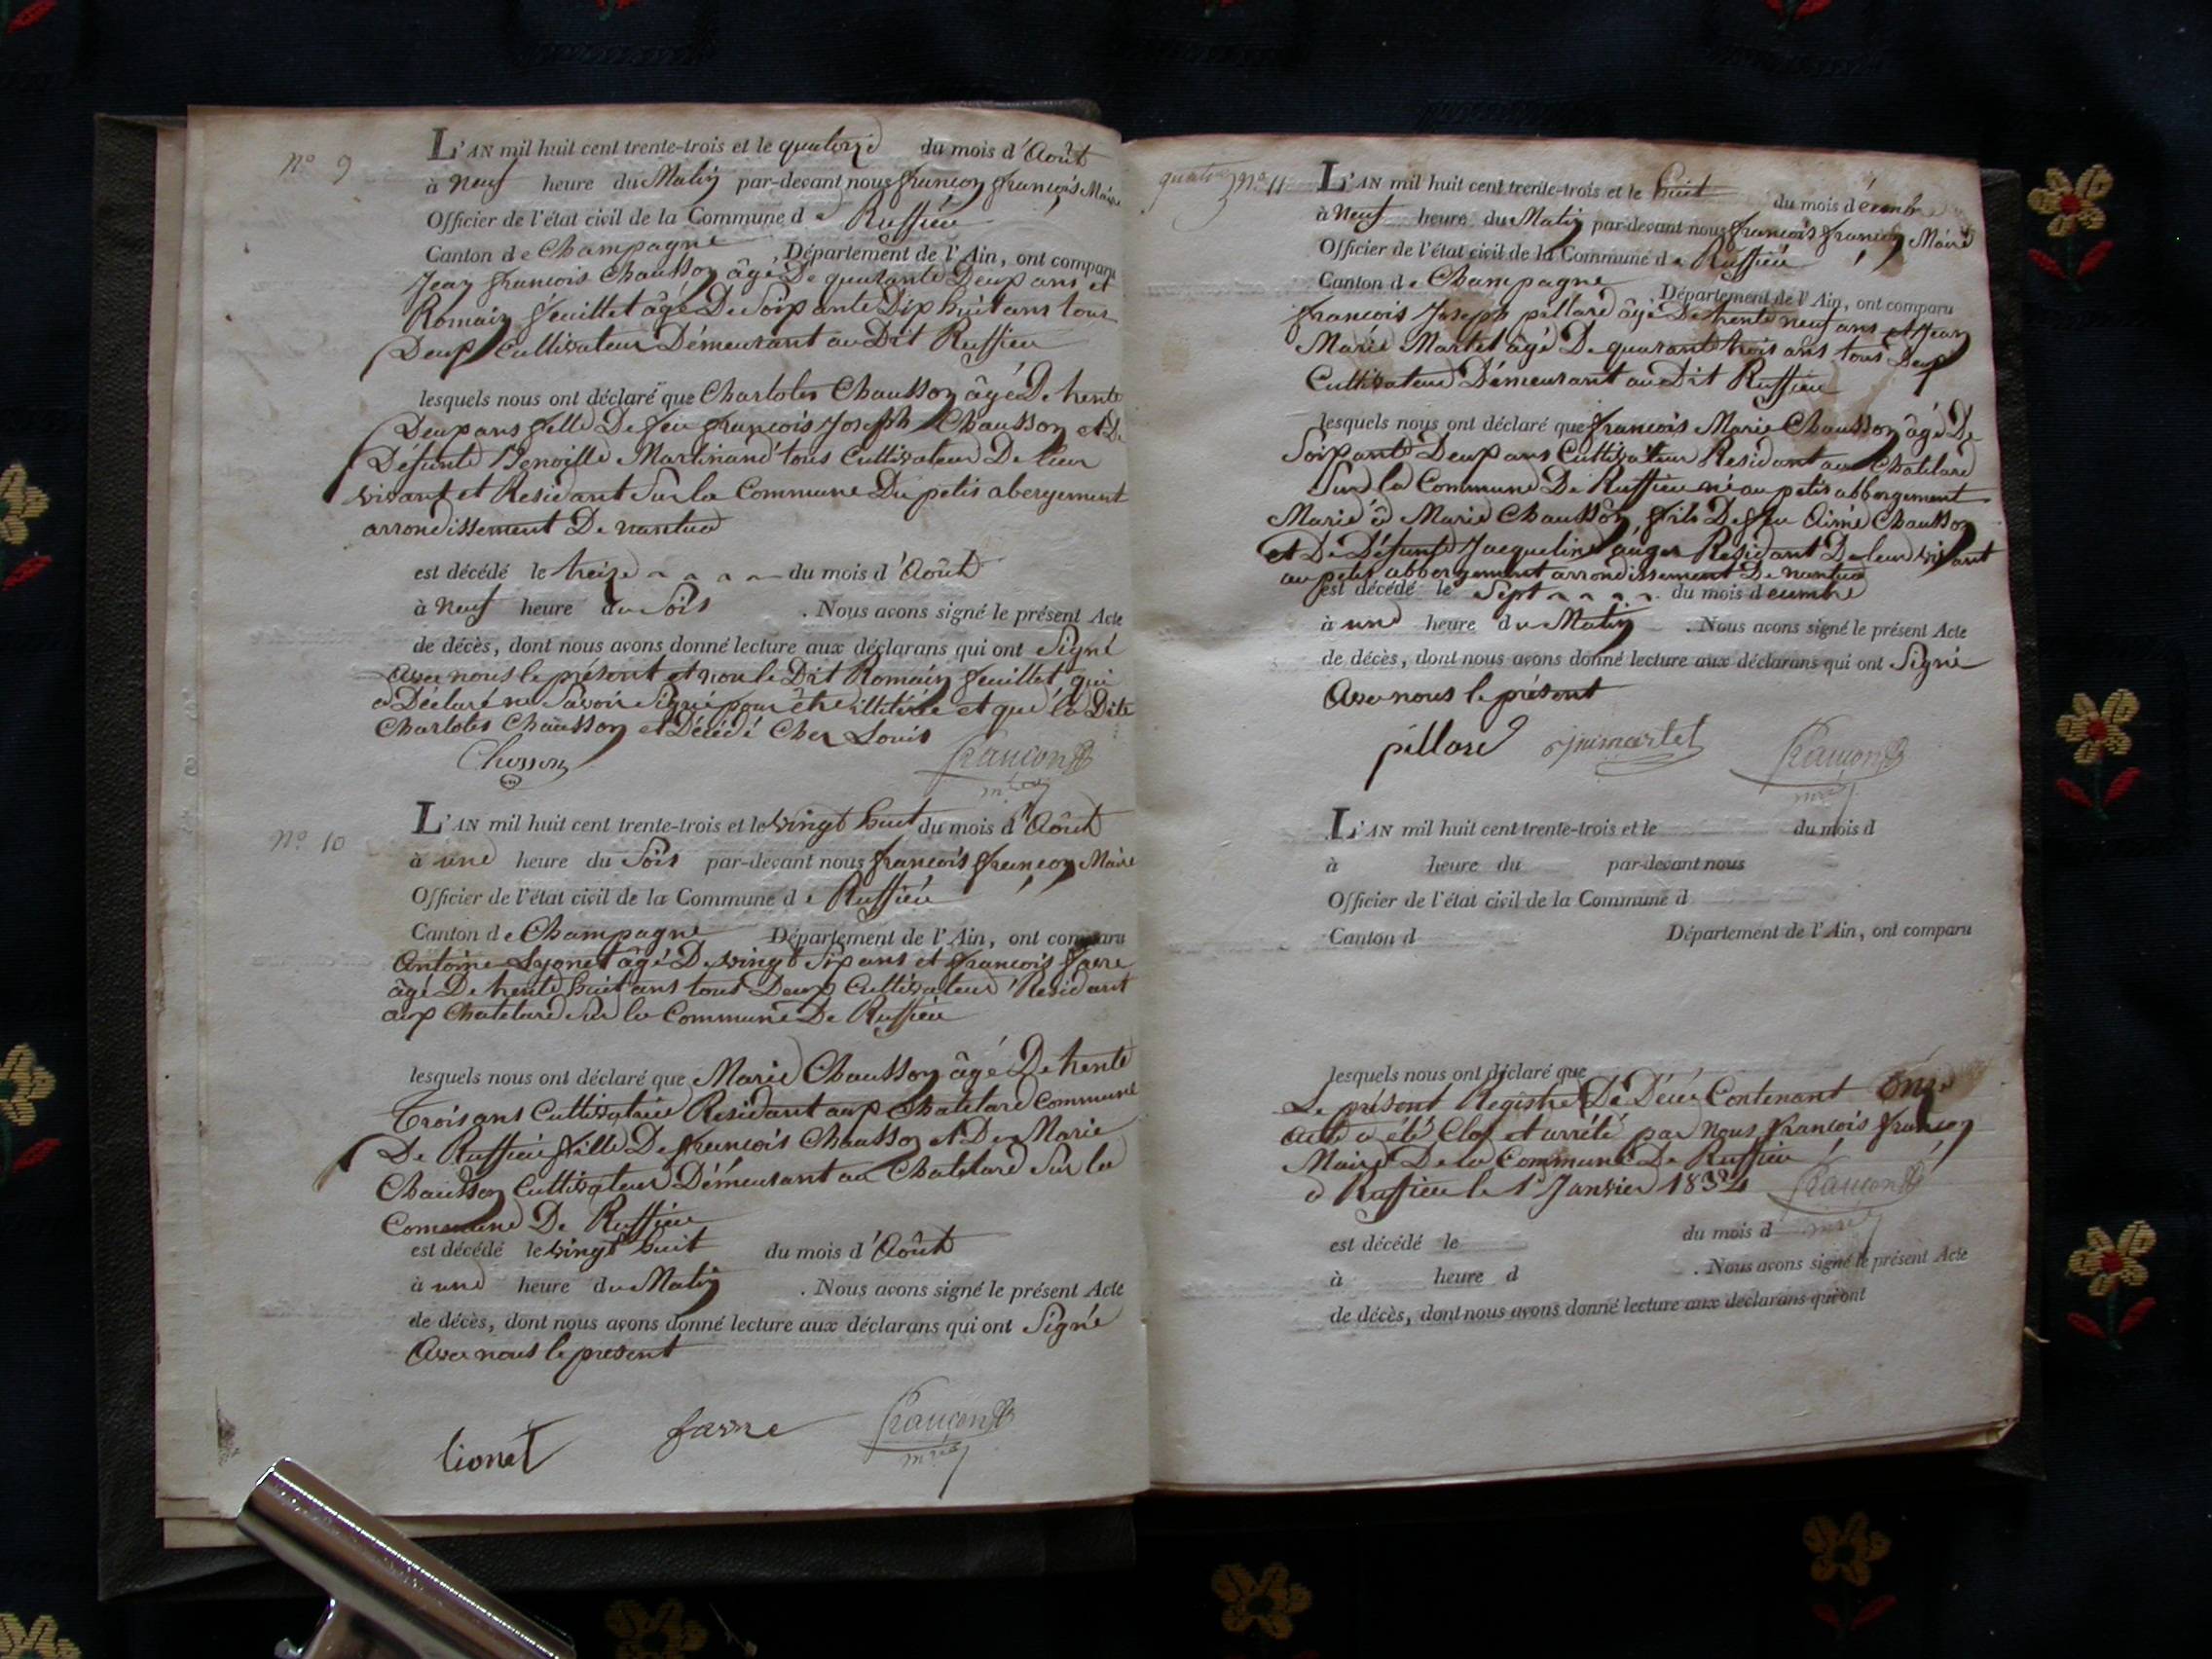 N.° 9
L'AN mil huit cent trente-trois et le quatorze du mois d'Août
à neuf heure du Matin par-devant nous françon françois Maire
Officier de l'état civil de la Commune de Ruffieu
Canton de Champagne Département de l'Ain, ont comparu
Jean françois Chausson âgé De quarante Deux ans et
Romain feuillet âgé De Soixante Dix huit ans tous
Deux Cultivateur Démeurant au Dit Ruffieu
lesquels nous ont déclaré que Charlotes Chausson âgé De trente
Deux ans fille De feu françois Joseph Chausson et De
Défunte Benoitte Martinand tous Cultivateur De leur
vivant et Residant Sur la Commune Du petit abergement
arrondissement De nantua
est décédé le treize du mois d'Août
à neuf heure du Soir . Nous avons signé le présent Acte
de décès, dont nous avons donné lecture aux déclarans qui ont Signé
Avec nous le présent et non le Dit Romain feuillet qui
a Déclaré ne Savoir Signé pour être illitérée et que la Dite
Charlotes Chausson et Décédé Chez Louis
Chosson
françon
mre
N.° 10
L'AN mil huit cent trente-trois et le vingt huit du mois d'Août
à une heure du Soir par-devant nous françois françon Maire
Officier de l'état civil de la Commune de Ruffieu
Canton de Champagne Département de l'Ain, ont comparu
Antoine Lyonet âgé De vingt Six ans et françois favre
âgé De trente huit ans tous Deux Cultivateur Residant
aux Chatelard Sur la Commune De Ruffieu
lesquels nous ont déclaré que Marie Chausson âgé De trente
Trois ans Cultivatrice Residant aux Chatelard Commune
De Ruffieu fille De françois Chausson et De Marie
Chausson Cultivateur Démeurant au Chatelard Sur la
Commune De Ruffieu
est décédé le vingt huit du mois d'Août
à une heure du Matin . Nous avons signé le présent Acte
de décès, dont nous avons donné lecture aux déclarans qui ont Signé
Avec nous le présent
lionet favre françon
mre
quatre N.° 11
L'AN mil huit cent trente-trois et le huit du mois décembre
à neuf heure du Matin par-devant nous françois françon Maire
Officier de l'état civil de la Commune de Ruffieu
Canton de Champagne Département de l'Ain, ont comparu
françois Joseph pillard âgé De trente neuf ans et Jean
Marie Martel âgé De quarante trois ans tous Deux
Cultivateur Démeurant au Dit Ruffieu
lesquels nous ont déclaré que françois Marie Chausson âgé De
Soixante Deux ans Cultivateur Residant au Chatelard
Sur la Commune De Ruffieu né au petit abbergement
Marié à Marie Chausson, fils De feu Aimé Chausson
et De Défunte Jacqueline auger Residant De leur vivant
au petit abbergement arrondissement De nantua
est décédé le Sept du mois décembre
à une heure du Matin . Nous avons signé le présent Acte
de décès, dont nous avons donné lecture aux déclarans qui ont Signé
Avec nous le présent
pillard jmmartel françon
mre
L'AN mil huit cent trente-trois et le du mois d
à heure du par-devant nous
Officier de l'état civil de la Commune d
Canton d Département de l'Ain, ont comparu
lesquels nous ont déclaré que
Le présent Registre De Décés Contenant Onze
acte a été Clos et arrété par nous françois françon
Maire De la Commune De Ruffieu
a Ruffieu le 1er Janvier 1834 françon
mre
est décédé le du mois d
à heure d . Nous avons signé le présent Acte
de décès, dont nous avons donné lecture aux déclarans qui ont